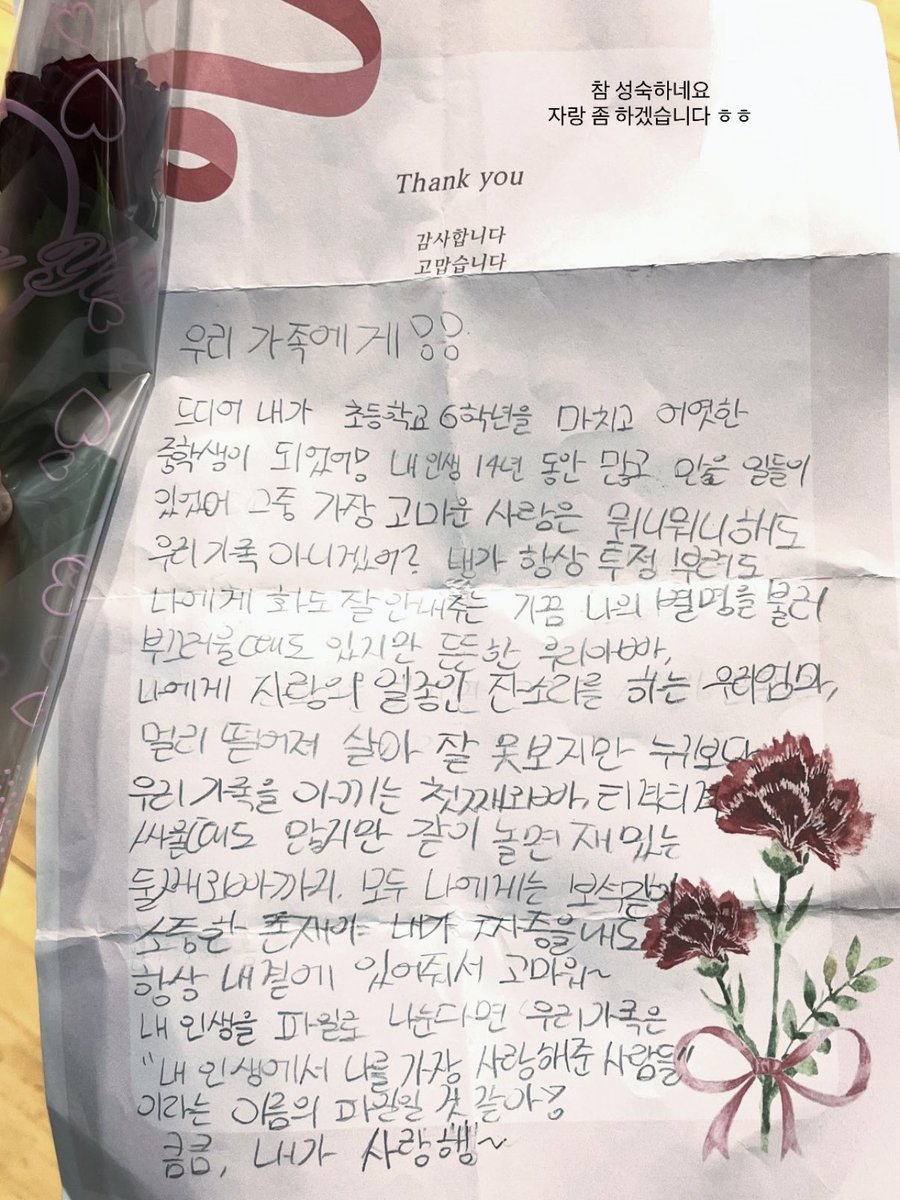 참 성숙하네요
자랑 좀 하겠습니다 ㅎㅎ
Thank you
감사합니다
고맙습니다
우리 가족에게
드디어 내가 초등학교 6학년을 마치고 어엿한
중학생이 되었어 내 인생 14년 동안 많고 많은 일들이
있었어 그중 가장 고마운 사람은 뭐니뭐니해도
우리가족 아니겠어? 내가 항상 투정 부려도
나에게 화도 잘 안내주는 가끔 나의 별명을 불러
부끄러울때도 있지만 든든한 우리아빠,
나에게 사랑의 일종인 잔소리를 하는 우리엄마,
멀리 떨어져 살아 잘 못보지만 누구보다
우리 가족을 아끼는 첫째오빠, 티격티격
싸울때도 많지만 같이 놀면 재밌는
둘째오빠까지. 모두 나에게는 보석같이
소중한 존재야 내가 짜증을내도
항상 내 곁에 있어줘서 고마워~
내 인생을 파일로 나눈다면 우리가족은
"내 인생에서 나를 가장 사랑해준 사람들"
이라는 이름의 파일일 것 같아
큼큼, 내가 사랑행~